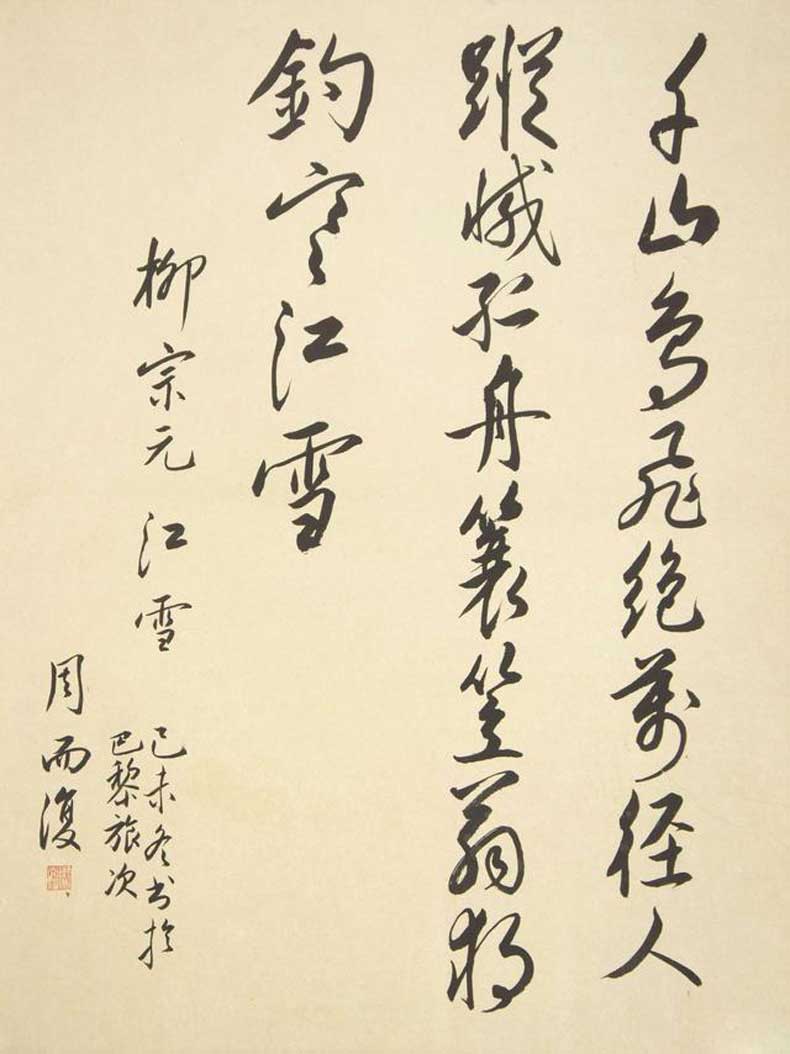 千山鳥飛絕萬徑人
蹤滅孤舟簑笠翁獨
釣寒江雪
柳宗元 江雪
己未冬書於
巴黎旅次
周而復